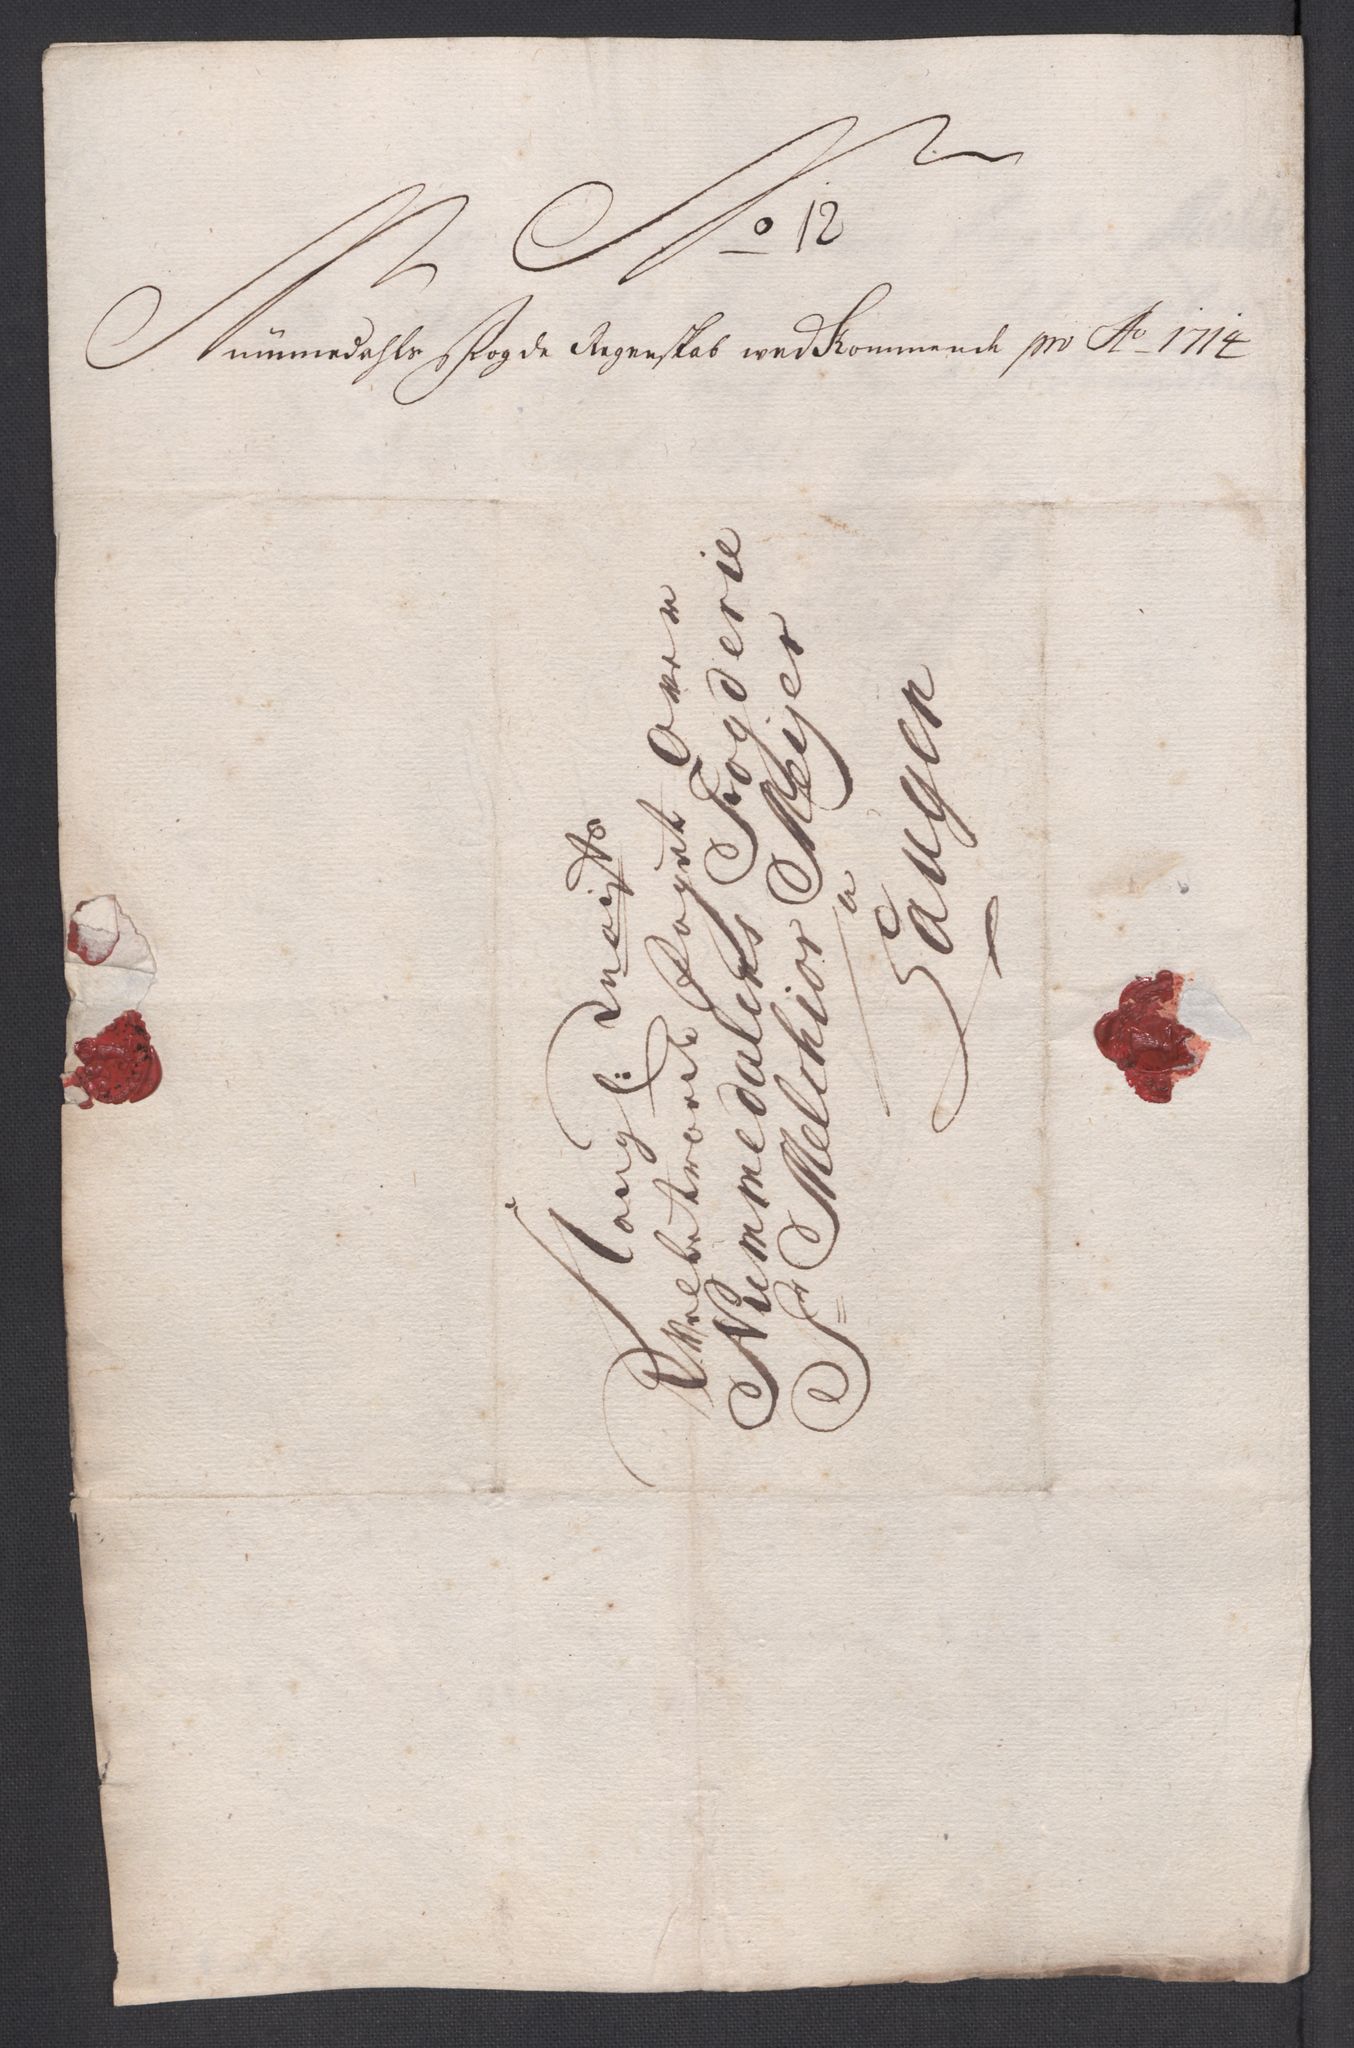 No 12
Nummedahls Fogde Regenskab wed Kommende pro Ao 1714
Kongl: Maijts
Welbetroede Foget Over
Nummedalens Fogderie
Sr Melchior Meijer
a
Saugen